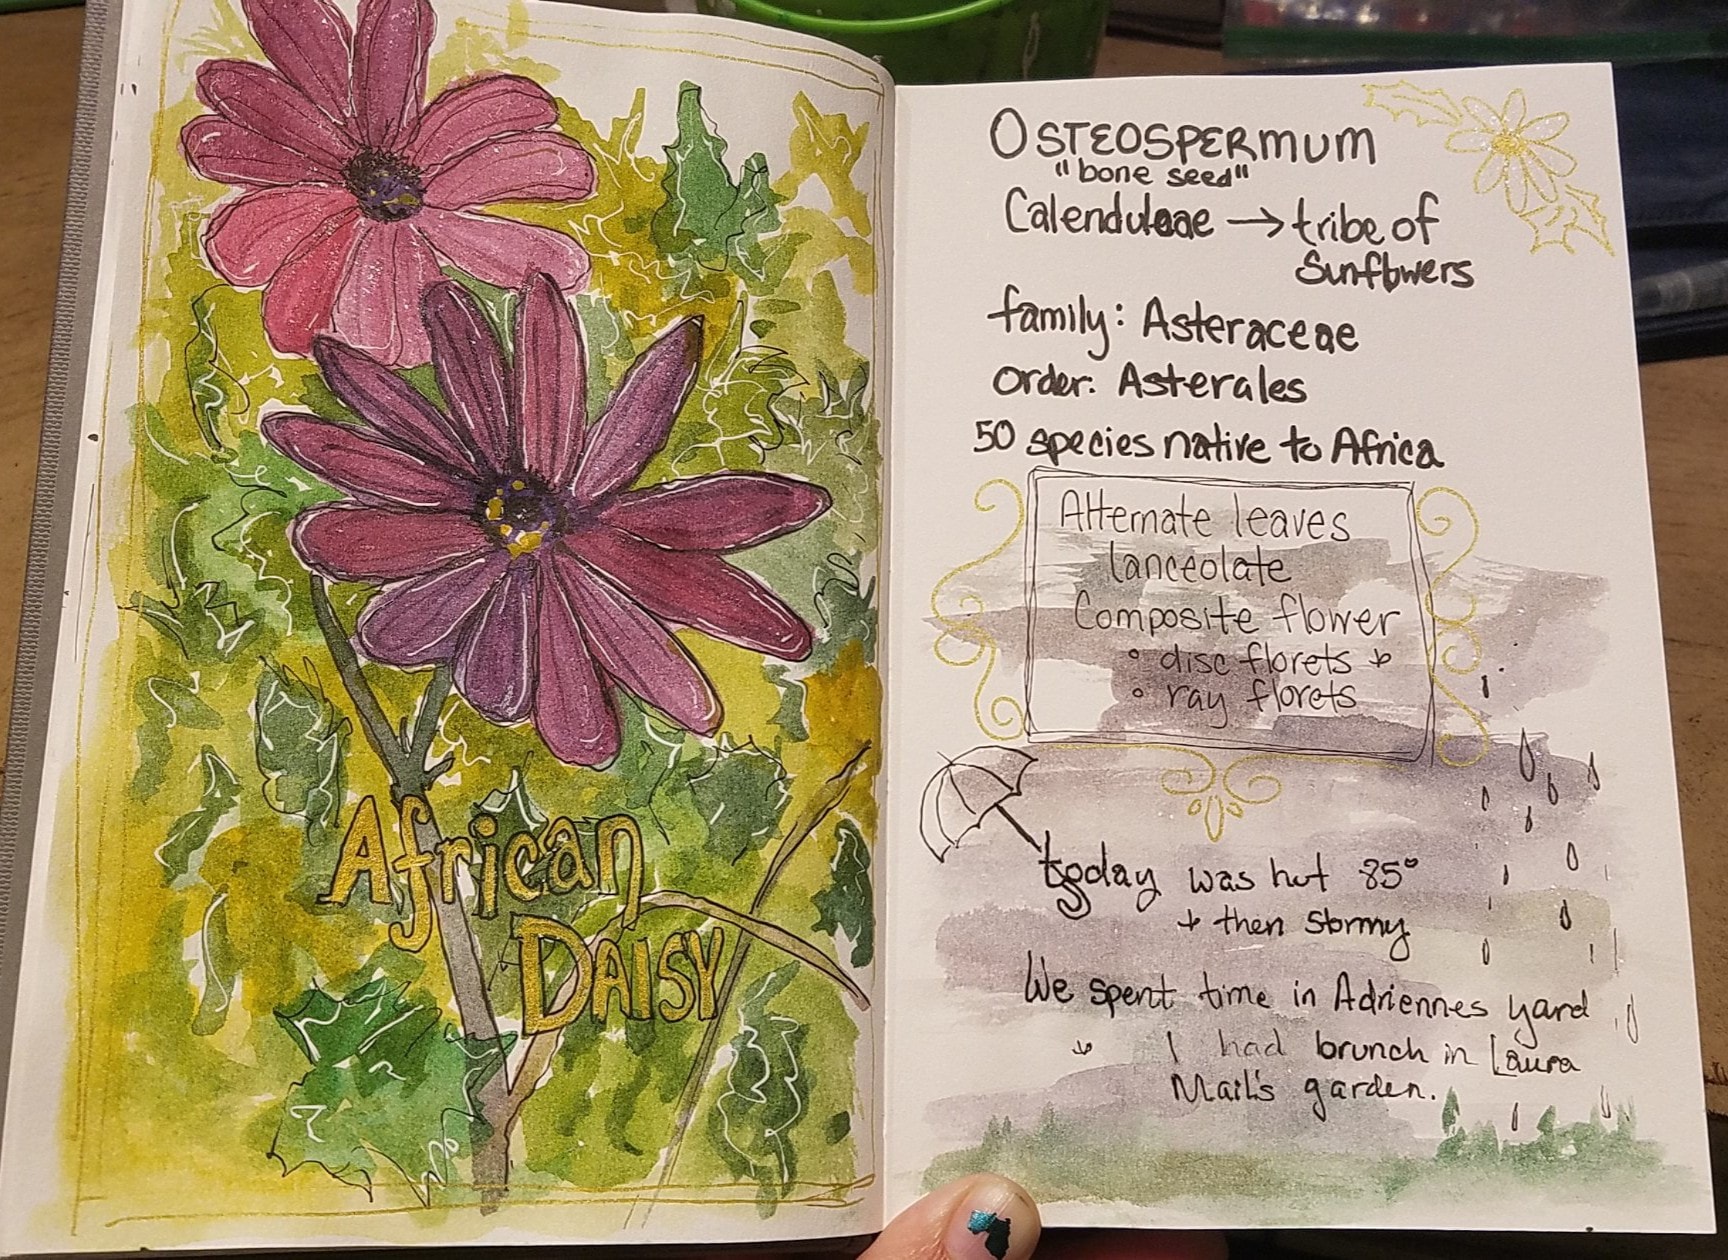 African
DAISY
OSTEOSPERMUM
"bone seed"
Calenduleae → tribe of
Sunflowers
family: Asteraceae
Order: Asterales
50 species native to Africa
Alternate leaves
lanceolate
Composite flower
• disc florets +
• ray florets
today was hot 85°
+ then stormy
We spent time in Adriennes yard
+ I had brunch in Laura
Mail's garden.